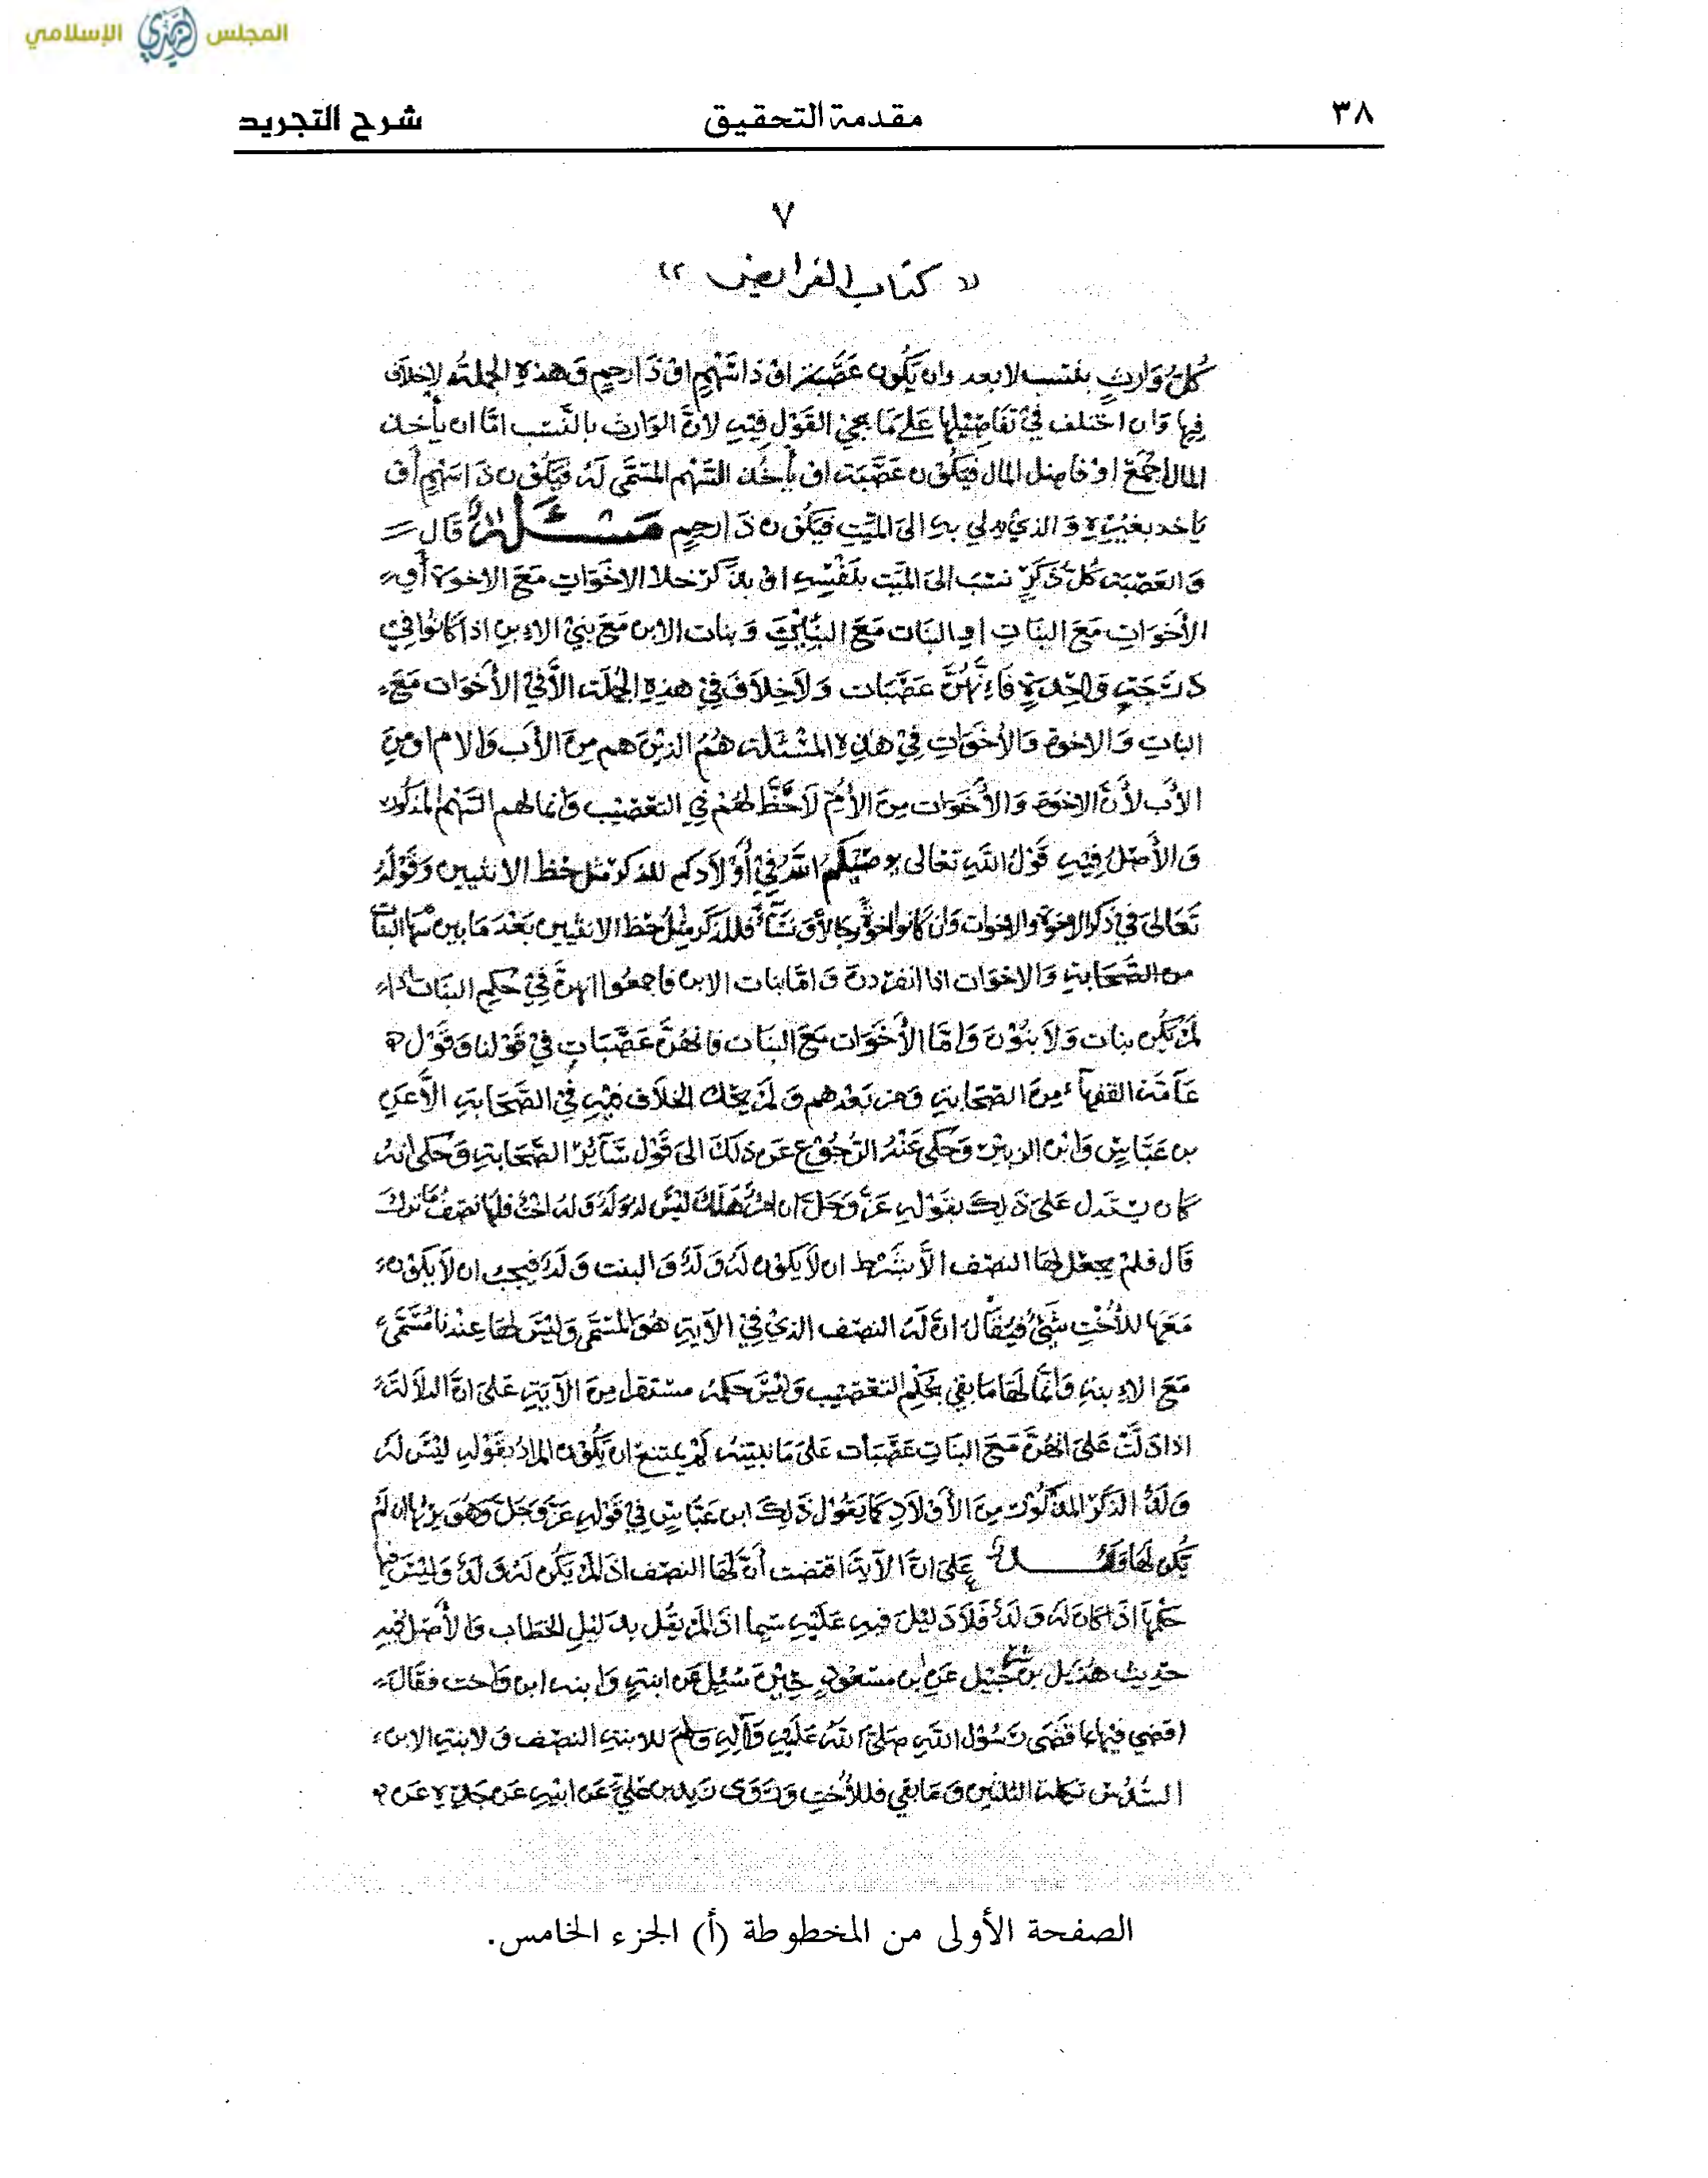 المجلس الزيدي الإسلامي
٣٨ مقدمة التحقيق شرح التجريد
٧
كتاب الفرايض
كُلُ وَارثٍ بنسب لا بعد وان يَكُون عَصَبة اوْ ذا سَهْمٍ اوْ ذَا رحِمٍ وَهذهِ الجملةُ لاخلافَ
فيها وَان اختلف فيْ تفاصيْلِها عَلى مَا يجيْ القَوْل فِيْهِ لأنَّ الوَارث بالنَّسَب امَّا ان يأخذ
المال اجْمَعْ اوْ فاضِل المال فيَكُوْن عَصَبَة اوْ يأخُذ السَّهْم المسَمَّى لَهُ فيَكُوْن ذَا سَهْمٍ أوْ
يَاخذ بغيْرِهِ وَالذيْ يدلي بهِ الىَ المَيِّتِ فيَكُوْن ذَا رحِمٍ مَسْئَلَة قَالَ
وَالعَصَبَة كُلّ ذَكَرٍ نسب الىَ الميِّت بنَفْسِهِ اوْ بذَكَرٍ خلا الاخَوَاتِ مَعَ الاخوة أو
الأخَوَاتِ مَعَ البنَاتِ او البنَات مَعَ البَنِيْنَ وَبنات الابن مَعَ بنيْ الابن اذا كَانُوا فيْ
دَرَجَةٍ وَاحِدَةٍ فَاِنَّهُنَّ عَصَبَات وَلاَخِلاَفَ فيْ هذهِ الجُملَة الاَّ فيْ الأخوَات مَعَ
البنات وَالاخوة وَالأخَوَاتِ فيْ هذِهِ المَسْئَلَة هُمُ الذيْنَ هم مِنَ الأب وَالام اوْ مِنَ
الأب لأنَّ الاخوَة وَالأخَوَات مِنَ الأمِّ لاَحَظَّ لهُمْ فيْ التعْصيْب وَانما لهم السَّهْم المذكور
وَالأصْلُ فيْهِ قَوْلُ اللَّهِ تعَالى يوصيْكُم اللَّهُ فيْ أوْلاَدكم للذكر مثل حظ الانثيين وَقَوْلهُ
تعَالىَ فيْ ذكر الاخوة والاخوات وَان كَانوا اخوةً رجالاً وَنسَآءً فللذكر مثْلُ حظ الانثيين بَعْدَ مَا بين سهَام البنات
من الصَّحَابةِ وَالاخوَات اذا انفرَدنَ وَامَّا بنات الابن فَاجمعُوا انهنَّ فيْ حُكمِ البنات اذا
لمْ يَكُن بنات وَلاَ بنُوْنَ وَامَّا الأخَوَات مَعَ البنَات فانهُنَّ عَصَبَاتٍ فيْ قوْلنا وَقَوْل
عَآمَّة الفقهآء مِنَ الصَّحَابةِ وَمن بَعْدهم وَلَمْ يحْك الخلاَف فيْهِ فيْ الصَّحَابَةِ الاَّ عَن
بن عَبَّاسٍ وَابن الزبيْر وَحكَى عَنْهُ الرُّجُوْع عَن ذلَكَ الىَ قَوْل سَآئِر الصَّحَابةِ وَحكى انهُ
كَان يسْتَدل عَلىَ ذَلِكَ بقَوْلهِ عَزَّ وَجَلَّ ان امرؤٌ هَلَكَ ليْسَ لهُ وَلدٌ وَلهُ اختٌ فلهَا نصْفُ مَا تركَ
قَال فلمْ يجعَل لهَا النصْف الاَّ بشَرْط ان لاَ يكُوْن لَهُ وَلَدٌ وَالبنت وَلَدٌ فيجبُ ان لاَ يَكُوْن
مَعَهَا للأخْتِ شَيْءٌ فيُقَال انّ لَهُ النصْف الذيْ فيْ الآيةِ هُوَ المُسَمَّى وَليْسَ لهَا عِنْدنا مُسَمَّى
مَعَ الابنةِ وَانَّما لهَا مَا بقيَ بحُكْمِ التعْصيْب وَليْسَ حكمهُ مستقل مِنَ الآيَةِ عَلىَ انَّ الدلاَلةَ
اذا دَلَّتْ عَلىَ انهُنَّ مَعَ البنَاتِ عَصَبَات عَلىَ مَا نبيِّنهُ لمْ يمتنع ان يَكُوْن المرادُ بقَوْلهِ ليْسَ لهُ
وَلَدٌ الذكَر المذكُوْر مِنَ الأوْلاَدِ كَمَا يَقُوْل ذَلِكَ ابن عَبَّاسٍ فيْ قَوْلهِ عَزَّ وَجَلَّ وَهُوَ يرِثُهَا ان لَّمْ
يَكُن لهَا وَلَدٌ عَلىَ انَّ الآيةَ اقتضت أنَّ لهَا النصْف اذ لمْ يَكُن لَهُ وَلَدٌ وَليْسَ فيْهَا
حكْمهَا اذَا كَان لَهُ وَلَدٌ فَلاَ دَليْلَ فيْهِ عَلَيْهِ سيَّما اذ لمْ يقُل بدَليْلِ الخطَاب وَالأصْل فيْهِ
حدِيْث هُذَيْل بن شرحبيْل عَن بن مسعُوْدٍ حِيْنَ سُئِلَ عَن ابنتٍ وَابنه ابن وَاخت فقَالَ
اقضي فيْهَا بمَا قَضَى رَسُوْل اللَّهِ صَلَّىَ اللَّهُ عَلَيْهِ وَآلِهِ وَسَلَّمَ للابنةِ النصْف وَلابنةِ الابن
السُّدُس تكملة الثلثيْن وَمَا بقي فللأُخْتِ وَرَوَى زَيد بن عَليٍّ عَن ابيْهِ عَن جَدِّهِ عَن
الصفحة الأولى من المخطوطة (أ) الجزء الخامس.